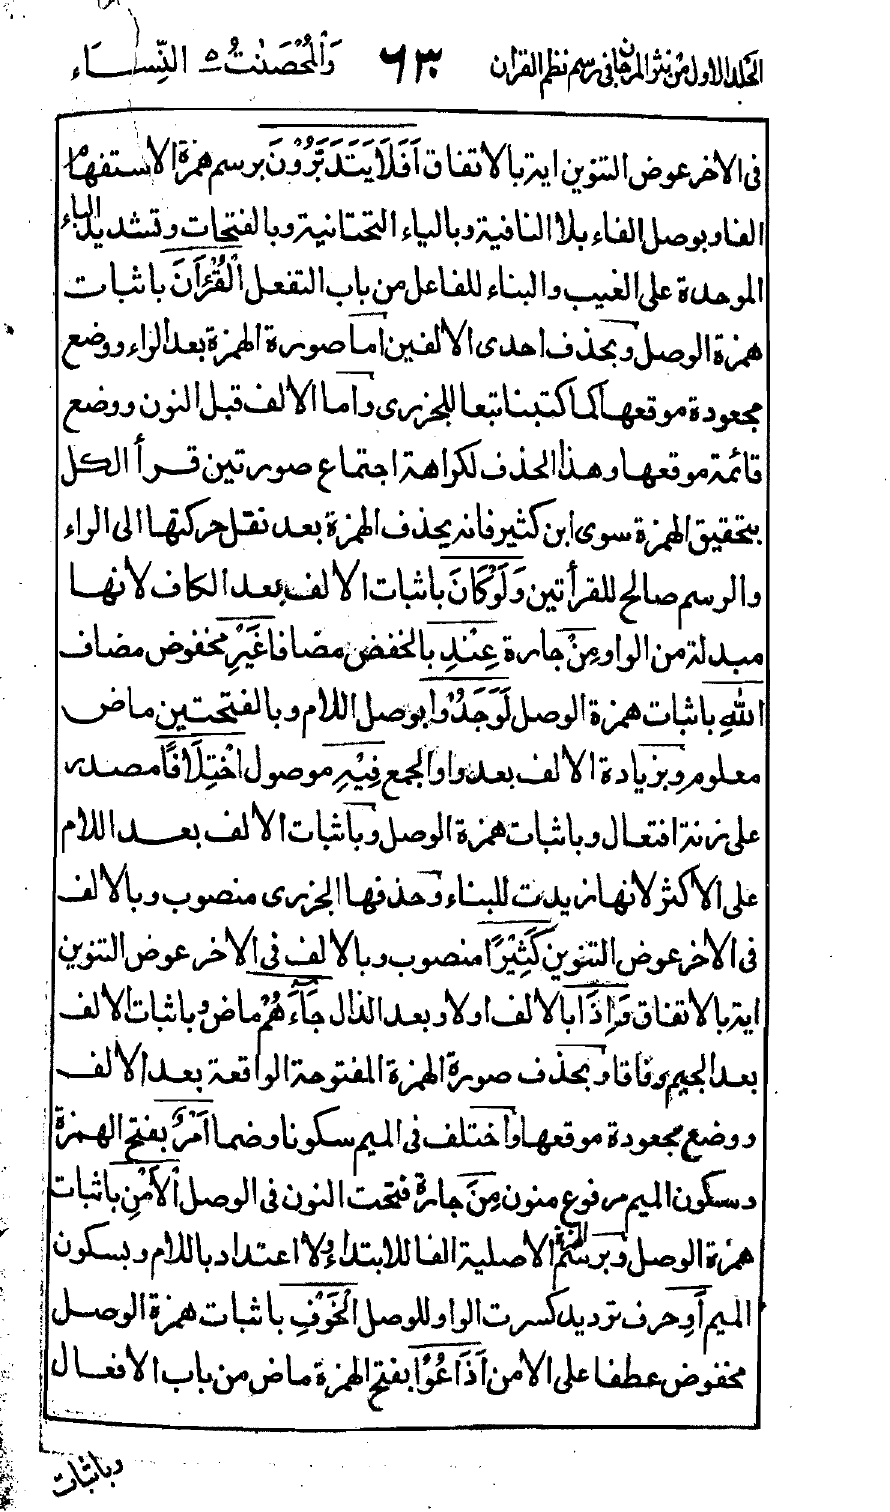 الجلد الاول من نثر المرجان فى رسم نظم القران ٦٣٠ وَالْمُحْصَنٰتُ ٥ النِّسَاء
فى الاخر عوض التنوين اية بالاتفاق اَفَلَا يَتَدَبَّرُوْنَ برسم همزة الاستفهام
الفا وبوصل الفاء بلا النافية وبالياء التحتانية وبالفتحات وتشديد الباء
الموحدة على الغيب والبناء للفاعل من باب التفعل الْقُرْاٰنَ باثبات
همزة الوصل وبحذف احدى الالفين اما صورة الهمزة بعد الراء ووضع
مجعودة موقعها كما كتبنا تبعا للجزرى واما الالف قبل النون ووضع
قائمة موقعها وهذا الحذف لكراهة اجتماع صورتين قرأ الكل
بتحقيق الهمزة سوى ابن كثير فانه يحذف الهمزة بعد نقل حركتها الى الراء
والرسم صالح للقرأتين وَلَوْ كَانَ باثبات الالف بعد الكاف لانها
مبدلة من الواو مِنْ جارة عِنْدِ بالخفض مضافا غَيْرِ مخفوض مضاف
اللهِ باثبات همزة الوصل لَوَجَدُوْا بوصل اللام وبالفتحتين ماض
معلوم وبزيادة الالف بعد واو الجمع فِيْهِ موصول اخْتِلَافًا مصدر
على زنة افتعال وباثبات همزة الوصل وباثبات الالف بعد اللام
على الاكثر لانها زيدت للبناء وحذفها الجزرى منصوب وبالالف
فى الاخر عوض التنوين كَثِيْرًا منصوب وبالالف فى الاخر عوض التنوين
اية بالاتفاق وَاِذَا بالالف اولا وبعد الذال جَآءَهُمْ ماض وباثبات الالف
بعد الجيم وفاقا وبحذف صورة الهمزة المفتوحة الواقعة بعد الالف
ووضع مجعودة موقعها واختلف فى الميم سكونا وضما اَمْرٌ بفتح الهمزة
وسكون الميم مرفوع منون مِنَ جارة فتحت النون فى الوصل الْاَمْنِ باثبات
همزة الوصل وبرسم الهمزة الاصلية الفا للابتداء ولا اعتداد باللام وبسكون
الميم اَوِ حرف ترديد كسرت الواو للوصل الْخَوْفِ باثبات همزة الوصل
مخفوض عطفا على الامن اَذَاعُوْا بفتح الهمزة ماض من باب الافعال
وباثبات